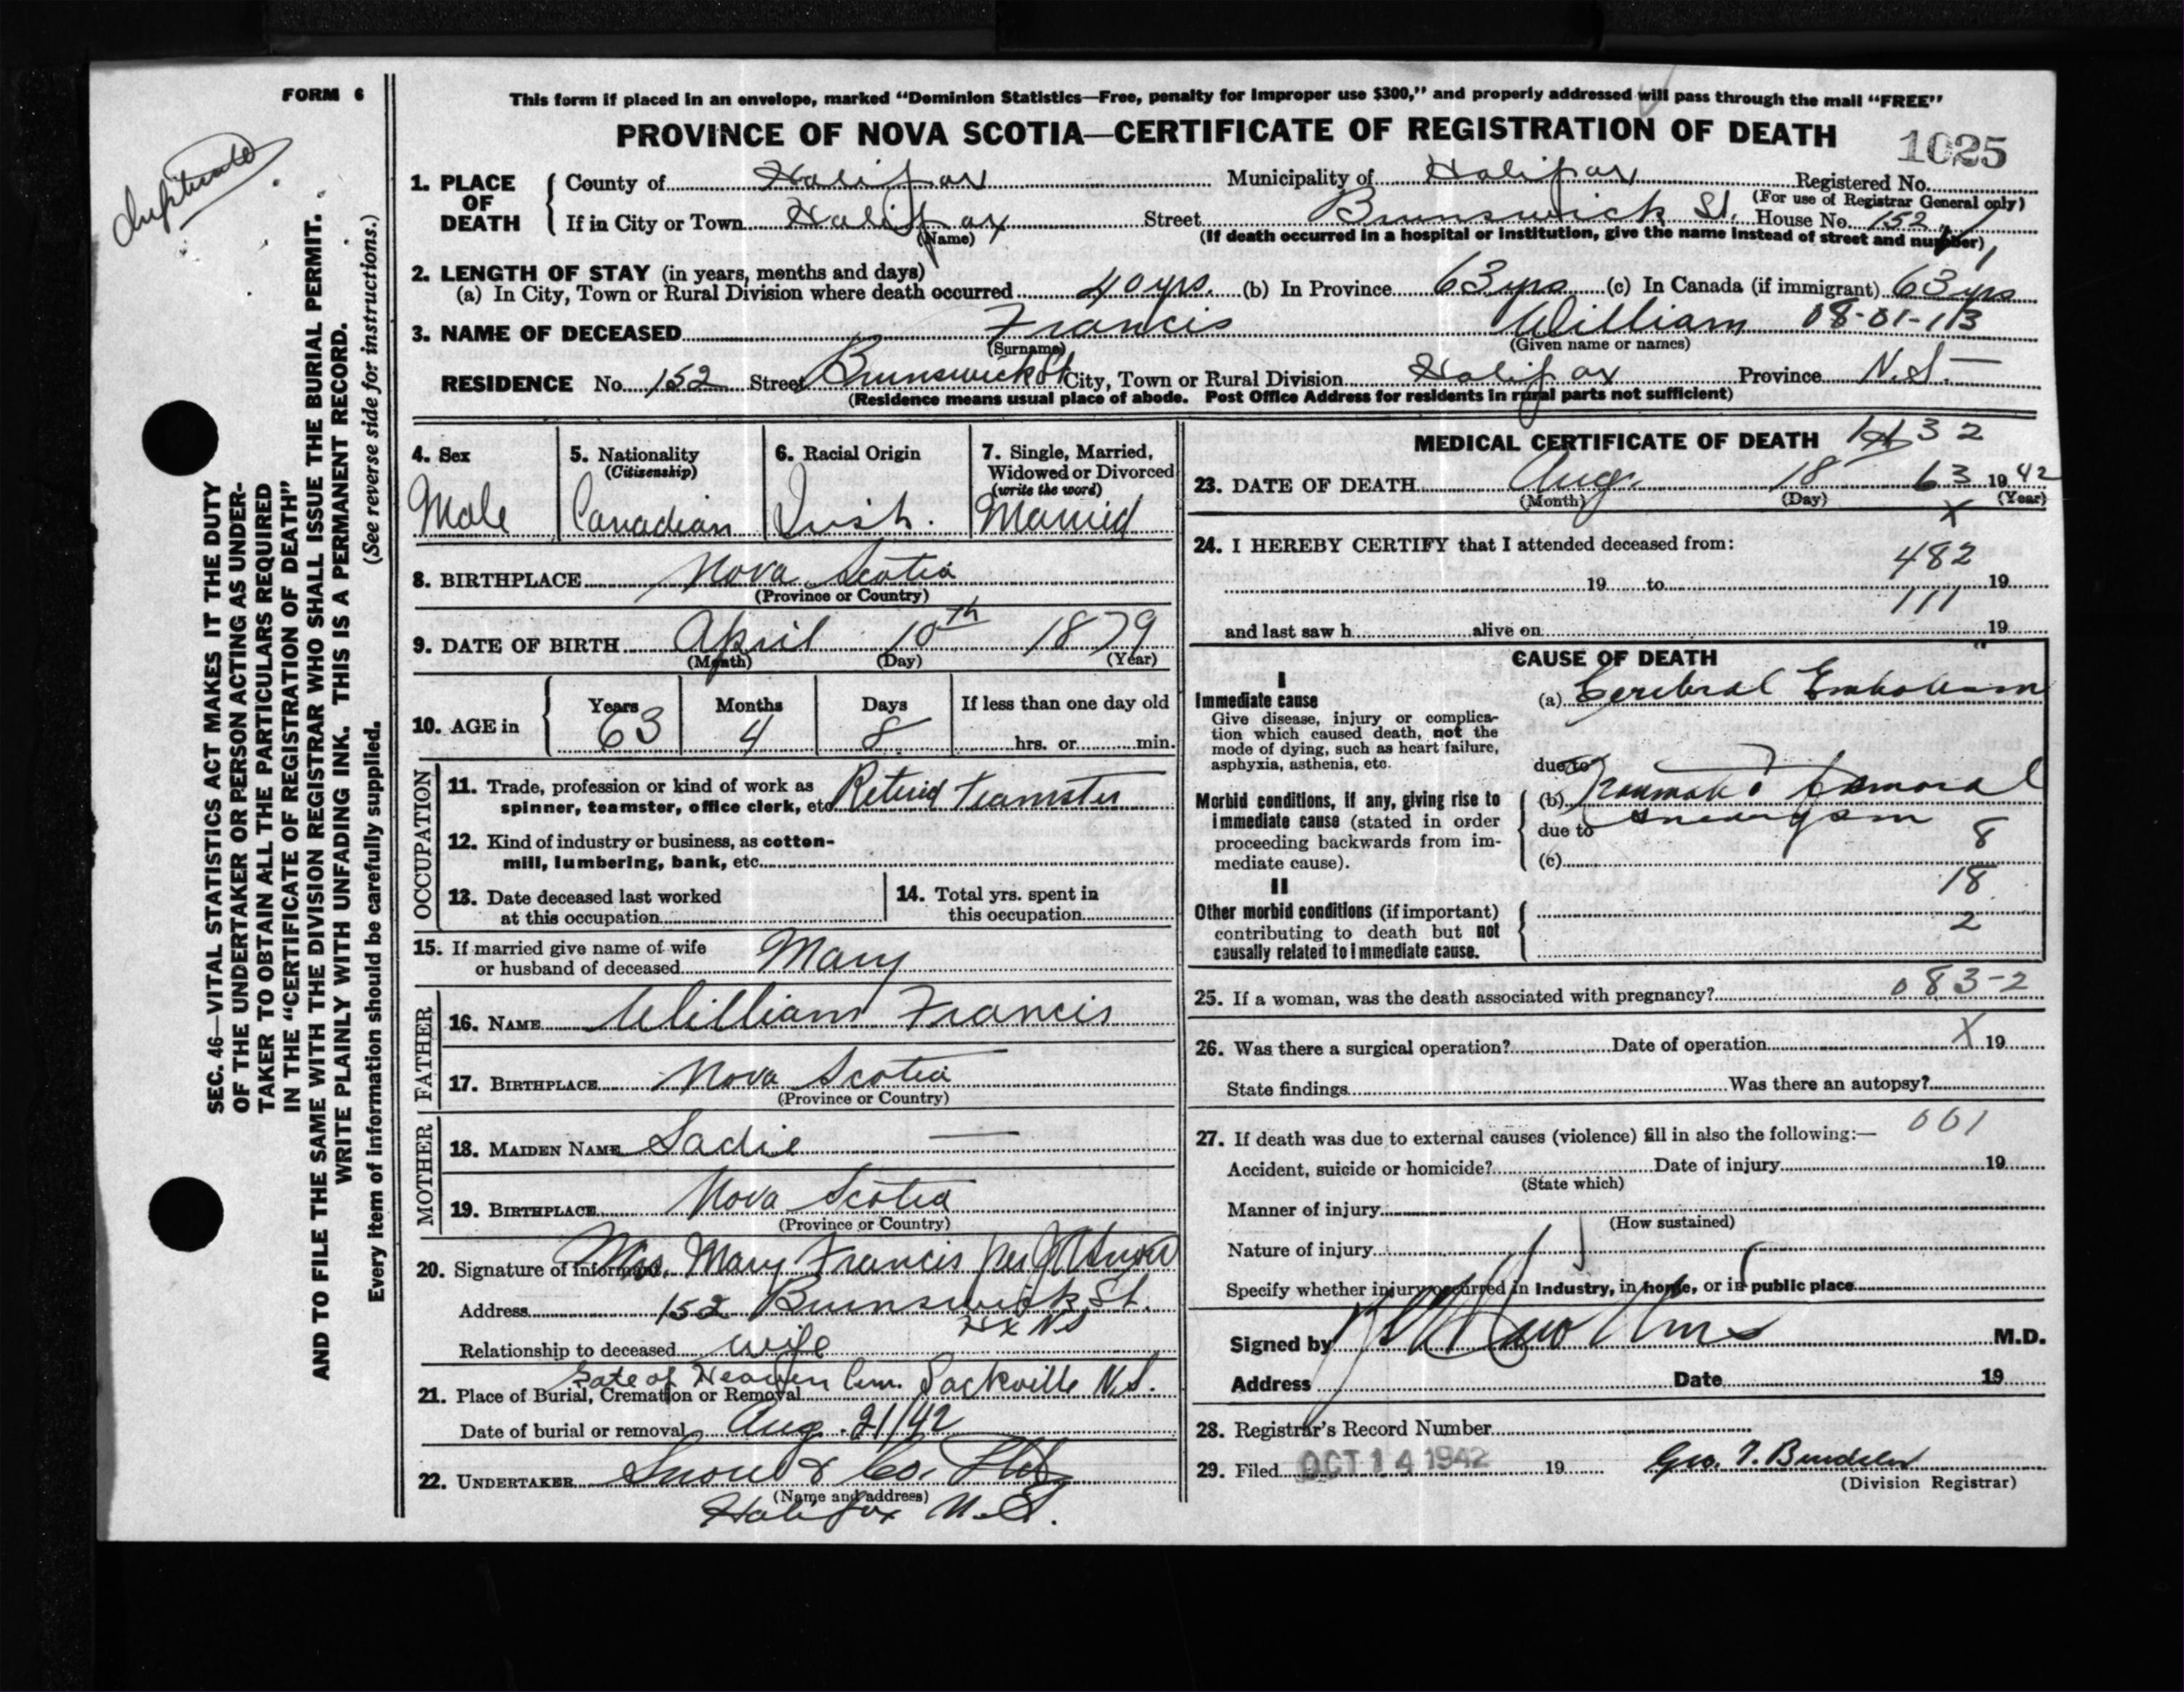 FORM 6
This form if placed in an envelope, marked “Dominion Statistics—Free, penalty for improper use $300,” and properly addressed will pass through the mail “FREE”
PROVINCE OF NOVA SCOTIA—CERTIFICATE OF REGISTRATION OF DEATH
1025
1. PLACE OF DEATH
County of Halifax Municipality of Halifax Registered No.
(For use of Registrar General only)
If in City or Town Halifax Street Brunswick St. House No. 152
(Name) (If death occurred in a hospital or institution, give the name instead of street and number)
2. LENGTH OF STAY (in years, months and days)
(a) In City, Town or Rural Division where death occurred 40 yrs. (b) In Province 63 yrs (c) In Canada (if immigrant) 63 yrs
3. NAME OF DECEASED Francis William 08-01-113
(Surname) (Given name or names)
RESIDENCE No. 152 Street Brunswick St City, Town or Rural Division Halifax Province N.S.
(Residence means usual place of abode. Post Office Address for residents in rural parts not sufficient)
4. Sex
Male
5. Nationality
(Citizenship)
Canadian
6. Racial Origin
Irish.
7. Single, Married, Widowed or Divorced
(write the word)
Married
8. BIRTHPLACE Nova Scotia
(Province or Country)
9. DATE OF BIRTH April 10th 1879
(Month) (Day) (Year)
10. AGE in
Years Months Days If less than one day old
63 4 8 hrs. or min.
OCCUPATION
11. Trade, profession or kind of work as
spinner, teamster, office clerk, etc. Retired Teamster
12. Kind of industry or business, as cotton-
mill, lumbering, bank, etc.
13. Date deceased last worked
at this occupation
14. Total yrs. spent in
this occupation
15. If married give name of wife
or husband of deceased Mary
FATHER
16. NAME William Francis
17. BIRTHPLACE Nova Scotia
(Province or Country)
MOTHER
18. MAIDEN NAME Sadie —
19. BIRTHPLACE Nova Scotia
(Province or Country)
20. Signature of informant Mrs. Mary Francis per
Address 152 Brunswick St.
Hx NS
Relationship to deceased wife
Gate of Heaven Cem. Sackville N.S.
21. Place of Burial, Cremation or Removal
Date of burial or removal Aug. 21/42
22. UNDERTAKER Snow & Co. Ltd
(Name and address)
Halifax N.S.
MEDICAL CERTIFICATE OF DEATH
32
23. DATE OF DEATH Aug. 18 63 1942
(Month) (Day) (Year)
X
24. I HEREBY CERTIFY that I attended deceased from:
482
19 to 19
111
and last saw h alive on 19
CAUSE OF DEATH
I
Immediate cause
Give disease, injury or complica-
tion which caused death, not the
mode of dying, such as heart failure,
asphyxia, asthenia, etc.
(a) Cerebral Embolism
due to
Morbid conditions, if any, giving rise to
immediate cause (stated in order
proceeding backwards from im-
mediate cause).
(b) Traumatic femoral
due to aneurysm
8
(c)
II
18
Other morbid conditions (if important)
contributing to death but not
causally related to immediate cause.
2
083-2
25. If a woman, was the death associated with pregnancy?
26. Was there a surgical operation? Date of operation X 19
State findings Was there an autopsy?
001
27. If death was due to external causes (violence) fill in also the following:—
Accident, suicide or homicide? Date of injury 19
(State which)
Manner of injury
(How sustained)
Nature of injury
Specify whether injury occurred in Industry, in home, or in public place
Signed by M.D.
Address Date 19
28. Registrar's Record Number
29. Filed OCT 14 1942 19 Geo. T.
(Division Registrar)
SEC. 46—VITAL STATISTICS ACT MAKES IT THE DUTY
OF THE UNDERTAKER OR PERSON ACTING AS UNDER-
TAKER TO OBTAIN ALL THE PARTICULARS REQUIRED
IN THE “CERTIFICATE OF REGISTRATION OF DEATH”
AND TO FILE THE SAME WITH THE DIVISION REGISTRAR WHO SHALL ISSUE THE BURIAL PERMIT.
WRITE PLAINLY WITH UNFADING INK. THIS IS A PERMANENT RECORD.
Every item of information should be carefully supplied. (See reverse side for instructions.)